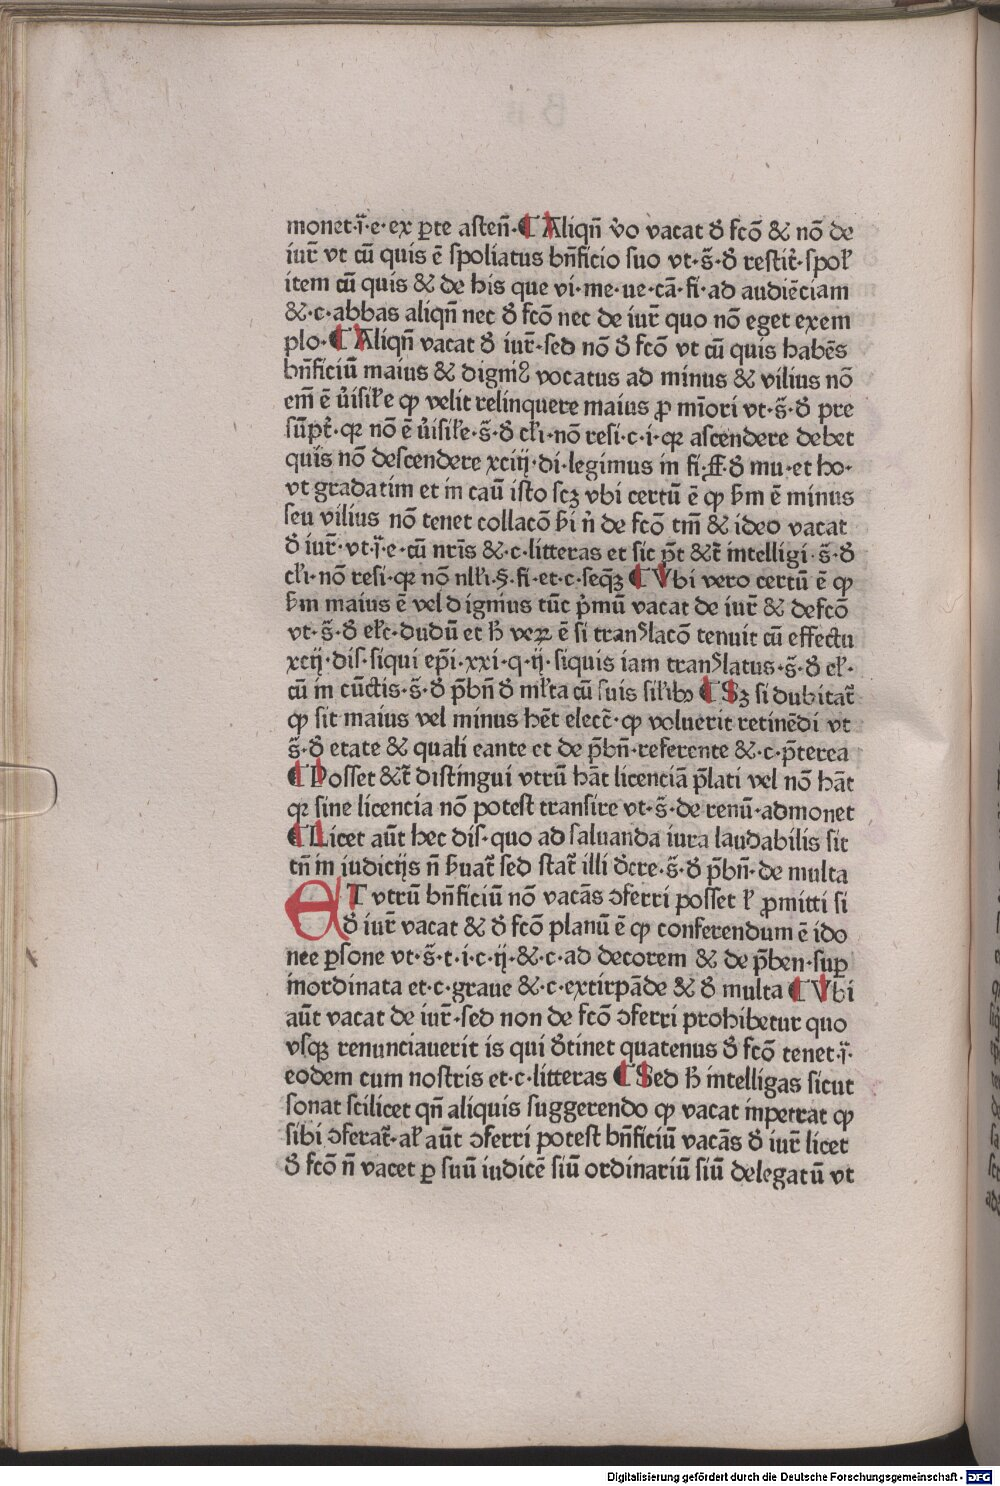 monet·i̅·e·ex ꝑte asten̄·¶ Aliqn̄ v̓o vacat ꝺ̄ fcō & nō de
iur̄ vt cū quis ē spoliatus bn̄ficio suo vt·s̄·ꝺ̄ restit̄·społ
item cū quis & de his que vi·me·ue·cā·fi·ad audiēciam
&·c·abbas aliqn̄ nec ꝺ̄ fcō nec de iur̄ quo nō eget exem
plo·¶ Aliqn̄ vacat ꝺ̄ iur̄·sed nō ꝺ̄ fcō vt cū quis habēs
bn̄ficiū maius & digniꝰ vocatus ad minus & vilius nō
em̄ ē v̓isiłe ꝙ velit relinquere maius ꝓ mīori vt·s̄·ꝺ̄ pre
sūpt̄·qꝛ nō ē v̓isiłe·s̄·ꝺ̄ cłi·nō resi·c·i·qꝛ ascendere debet
quis nō descendere xciij·di·legimus in fi·ff·ꝺ̄ mu·et ho·
vt gradatim et in caū isto scꝫ vbi certū ē ꝙ b̄m ē minus
seu vilius nō tenet collacō b̄i n̓ de fcō tm̄ & ideo vacat
ꝺ̄ iur̄·vt·i̅·e·cū nr̄is &·c·litteras et sic p̄t &t̄ intelligi·s̄·ꝺ̄
cłi·nō resi·qꝛ nō nłłi·§·fi·et·c·seq̄ꝫ ¶ Vbi vero certū ē ꝙ
b̄m maius ē vel dignius tūc p̓mū vacat de iur̄ & defcō
vt·s̄·ꝺ̄ ełc·dudū et h̄ veꝝ ē si transˡlacō tenuit cū effectu
xcij·dis·siqui ep̄i·xxi·q·ij·siquis iam transˡlatus·s̄·ꝺ̄ cł·
cū in cūctis·s̄·ꝺ̄ p̄bn̄ ꝺ̄ młta cū suis siłibꝫ ¶ Sꝫ si dubitat̄
ꝙ sit maius vel minus hēt elect̄·ꝙ voluerit retinēdi vt
s̄·ꝺ̄ etate & quali eante et de p̄bn̄·referente &·c·p̄terea
¶ Posset &t̄ distingui vtrū hāt licenciā p̄lati vel nō hāt
qꝛ sine licencia nō potest transire vt·s̄·de renū·admonet
¶ Licet aūt hec dis·quo ad saluanda iura laudabilis sit
tn̄ in iudicijs n̄ b̄uat̄ sed stat̄ illi ꝺ̄cre·s̄·ꝺ̄ p̄bn̄·de multa
ET vtrū bn̄ficiū nō vacās ↄferri posset ł ꝓmitti si
ꝺ̄ iur̄ vacat & ꝺ̄ fcō planū ē ꝙ conferendum ē ido
nee ꝑsone vt·s̄·t·i·c·ij·&·c·ad decorem & de p̄ben·suꝑ
inordinata et·c·graue &·c·extirpāde & ꝺ̄ multa ¶ Vbi
aūt vacat de iur̄·sed non de fcō ↄferri prohibetur quo
vsqꝫ renunciauerit is qui ꝺ̄tinet quatenus ꝺ̄ fcō tenet·i̅·
eodem cum nostris et·c·litteras ¶ Sed h̄ intelligas sicut
sonat scilicet qn̄ aliquis suggerendo ꝙ vacat inpetrat ꝙ
sibi ↄferat̄·ał aūt ↄferri potest bn̄ficiū vacās ꝺ̄ iur̄ licet
ꝺ̄ fcō n̄ vacet ꝑ suū iudicē siū ordinariū siū delegatū vt
Digitalisierung gefördert durch die Deutsche Forschungsgemeinschaft - DFG